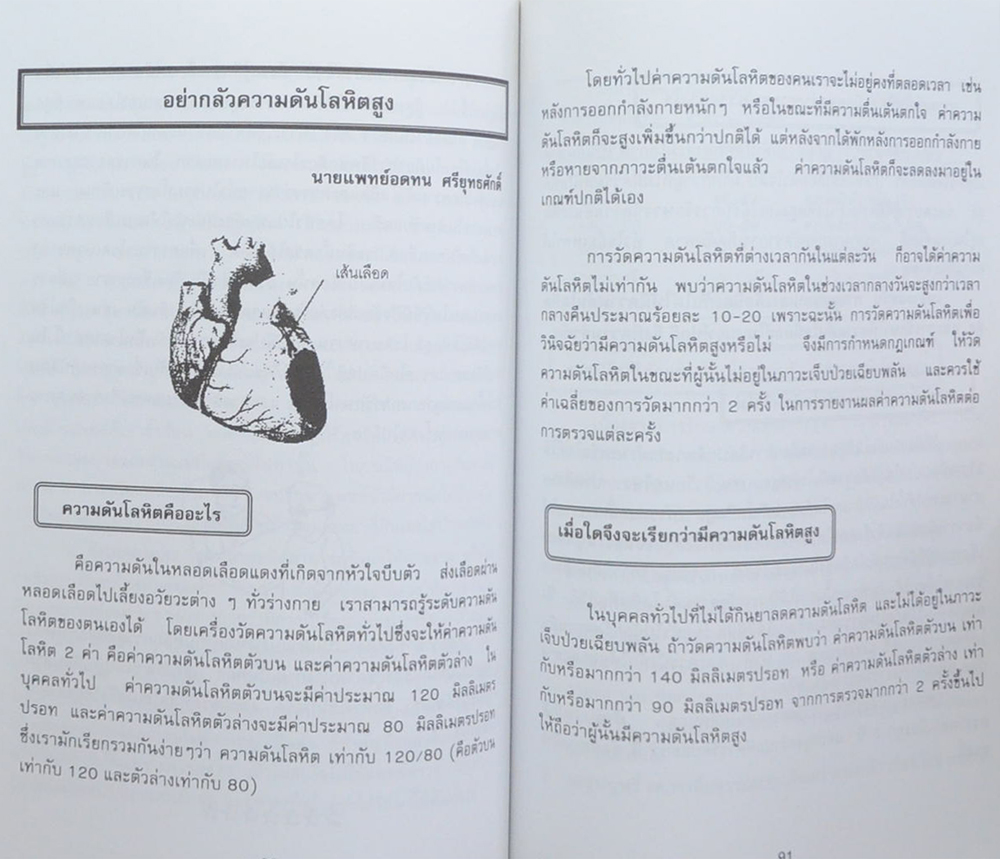 อย่ากลัวความดันโลหิตสูง
นายแพทย์อดทน ศรียุทธศักดิ์
เส้นเลือด
ความดันโลหิตคืออะไร
คือความดันในหลอดเลือดแดงที่เกิดจากหัวใจบีบตัว ส่งเลือดผ่าน
หลอดเลือดไปเลี้ยงอวัยวะต่าง ๆ ทั่วร่างกาย เราสามารถรู้ระดับความดัน
โลหิตของตนเองได้ โดยเครื่องวัดความดันโลหิตทั่วไปซึ่งจะให้ค่าความดัน
โลหิต 2 ค่า คือค่าความดันโลหิตตัวบน และค่าความดันโลหิตตัวล่าง ใน
บุคคลทั่วไป ค่าความดันโลหิตตัวบนจะมีค่าประมาณ 120 มิลลิเมตร
ปรอท และค่าความดันโลหิตตัวล่างจะมีค่าประมาณ 80 มิลลิเมตรปรอท
ซึ่งเรามักเรียกรวมกันง่ายๆว่า ความดันโลหิต เท่ากับ 120/80 (คือตัวบน
เท่ากับ 120 และตัวล่างเท่ากับ 80)
โดยทั่วไปค่าความดันโลหิตของคนเราจะไม่อยู่คงที่ตลอดเวลา เช่น
หลังการออกกำลังกายหนักๆ หรือในขณะที่มีความตื่นเต้นตกใจ ค่าความ
ดันโลหิตก็จะสูงเพิ่มขึ้นกว่าปกติได้ แต่หลังจากได้พักหลังการออกกำลังกาย
หรือหายจากภาวะตื่นเต้นตกใจแล้ว ค่าความดันโลหิตก็จะลดลงมาอยู่ใน
เกณฑ์ปกติได้เอง
การวัดความดันโลหิตที่ต่างเวลากันในแต่ละวัน ก็อาจได้ค่าความ
ดันโลหิตไม่เท่ากัน พบว่าความดันโลหิตในช่วงเวลากลางวันจะสูงกว่าเวลา
กลางคืนประมาณร้อยละ 10-20 เพราะฉะนั้น การวัดความดันโลหิตเพื่อ
วินิจฉัยว่ามีความดันโลหิตสูงหรือไม่ จึงมีการกำหนดกฎเกณฑ์ ให้วัด
ความดันโลหิตในขณะที่ผู้นั้นไม่อยู่ในภาวะเจ็บป่วยเฉียบพลัน และควรใช้
ค่าเฉลี่ยของการวัดมากกว่า 2 ครั้ง ในการรายงานผลค่าความดันโลหิตต่อ
การตรวจแต่ละครั้ง
เมื่อใดจึงจะเรียกว่ามีความดันโลหิตสูง
ในบุคคลทั่วไปที่ไม่ได้กินยาลดความดันโลหิต และไม่ได้อยู่ในภาวะ
เจ็บป่วยเฉียบพลัน ถ้าวัดความดันโลหิตพบว่า ค่าความดันโลหิตตัวบน เท่า
กับหรือมากกว่า 140 มิลลิเมตรปรอท หรือ ค่าความดันโลหิตตัวล่าง เท่า
กับหรือมากกว่า 90 มิลลิเมตรปรอท จากการตรวจมากกว่า 2 ครั้งขึ้นไป
ให้ถือว่าผู้นั้นมีความดันโลหิตสูง
91